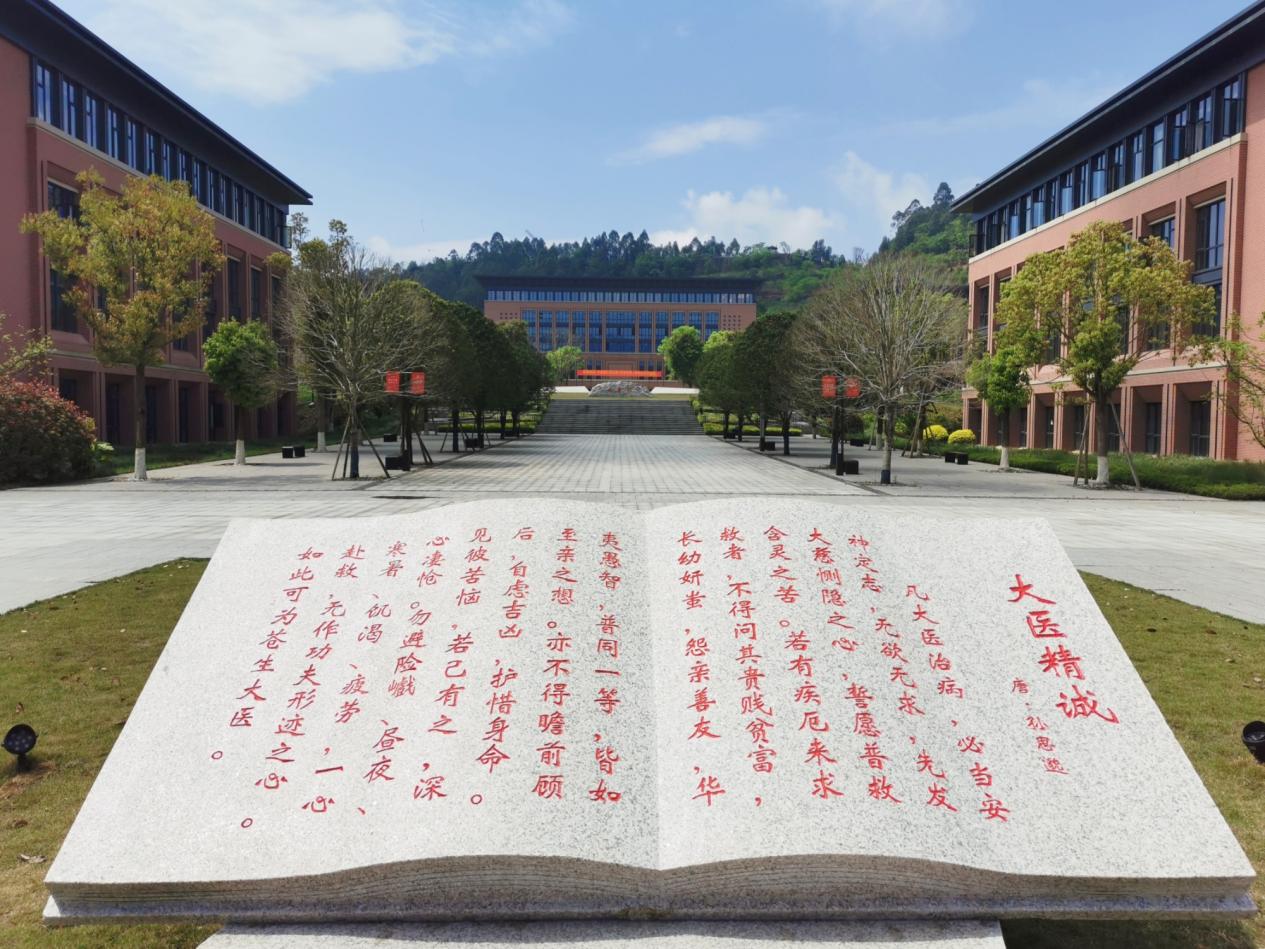 大医精诚
唐·孙思邈
凡大医治病，必当安
神定志，无欲无求，先发
大慈恻隐之心，誓愿普救
含灵之苦。若有疾厄来求
救者，不得问其贵贱贫富，
长幼妍蚩，怨亲善友，华
夷愚智，普同一等，皆如
至亲之想。亦不得瞻前顾
后，自虑吉凶，护惜身命。
见彼苦恼，若己有之，深
心凄怆。勿避险巇、昼夜、
寒暑、饥渴、疲劳，一心
赴救，无作功夫形迹之心。
如此可为苍生大医。